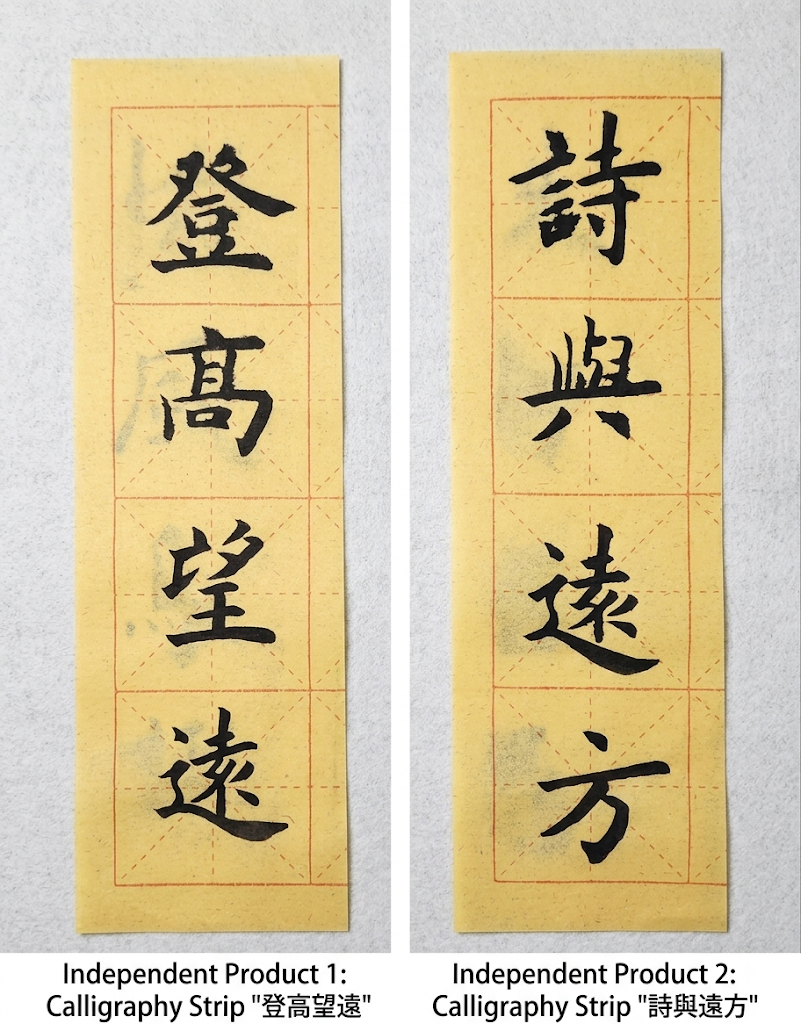 登高望遠
詩與遠方
Independent Product 1:
Calligraphy Strip "登高望遠"
Independent Product 2:
Calligraphy Strip "詩與遠方"